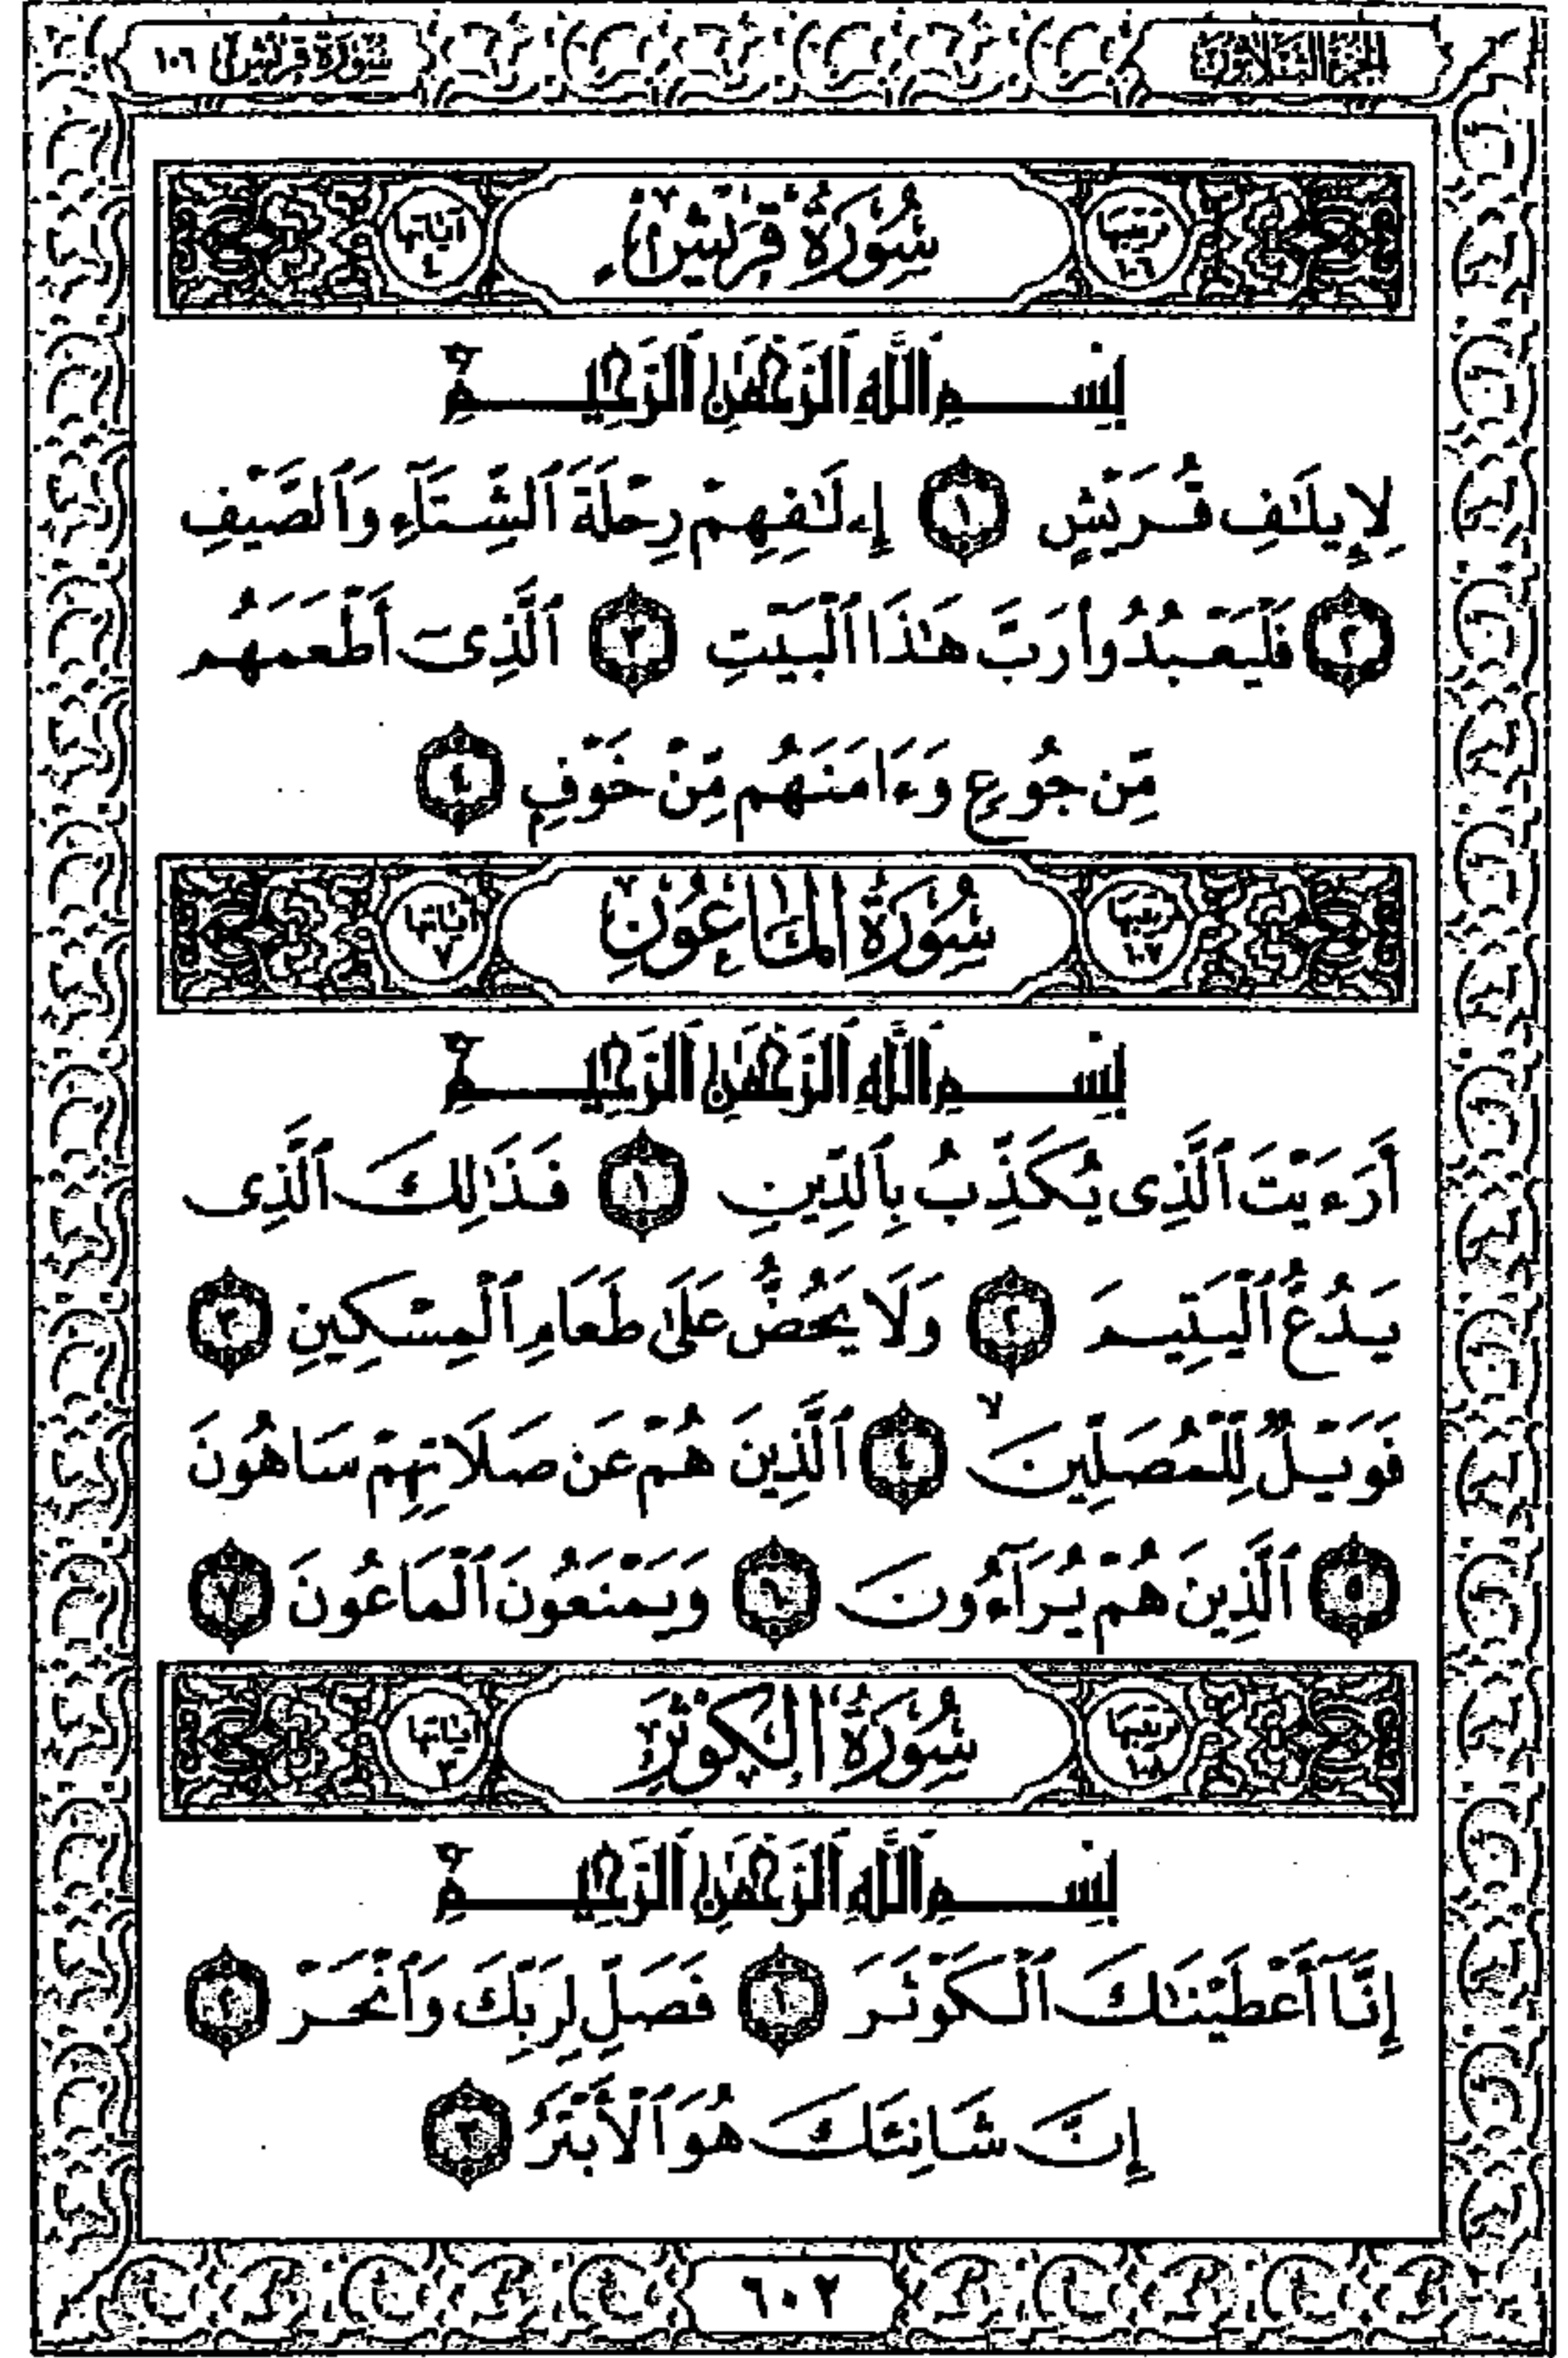 الجزء الثلاثون
سورة قريش ١٠٦
ترتيبها ١٠٦
سُورَةُ قُرَيْشٍ
آياتها ٤
بِسْمِ ٱللَّهِ ٱلرَّحْمَٰنِ ٱلرَّحِيمِ
لِإِيلَٰفِ قُرَيْشٍ ١ إِۦلَٰفِهِمْ رِحْلَةَ ٱلشِّتَآءِ وَٱلصَّيْفِ
٢ فَلْيَعْبُدُوا۟ رَبَّ هَٰذَا ٱلْبَيْتِ ٣ ٱلَّذِىٓ أَطْعَمَهُم
مِّن جُوعٍ وَءَامَنَهُم مِّنْ خَوْفٍۭ ٤
ترتيبها ١٠٧
سُورَةُ المَاعُونِ
آياتها ٧
بِسْمِ ٱللَّهِ ٱلرَّحْمَٰنِ ٱلرَّحِيمِ
أَرَءَيْتَ ٱلَّذِى يُكَذِّبُ بِٱلدِّينِ ١ فَذَٰلِكَ ٱلَّذِى
يَدُعُّ ٱلْيَتِيمَ ٢ وَلَا يَحُضُّ عَلَىٰ طَعَامِ ٱلْمِسْكِينِ ٣
فَوَيْلٌ لِّلْمُصَلِّينَ ۙ ٤ ٱلَّذِينَ هُمْ عَن صَلَاتِهِمْ سَاهُونَ
٥ ٱلَّذِينَ هُمْ يُرَآءُونَ ٦ وَيَمْنَعُونَ ٱلْمَاعُونَ ٧
ترتيبها ١٠٨
سُورَةُ الكَوْثَرِ
آياتها ٣
بِسْمِ ٱللَّهِ ٱلرَّحْمَٰنِ ٱلرَّحِيمِ
إِنَّآ أَعْطَيْنَٰكَ ٱلْكَوْثَرَ ١ فَصَلِّ لِرَبِّكَ وَٱنْحَرْ ٢
إِنَّ شَانِئَكَ هُوَ ٱلْأَبْتَرُ ٣
٦٠٢